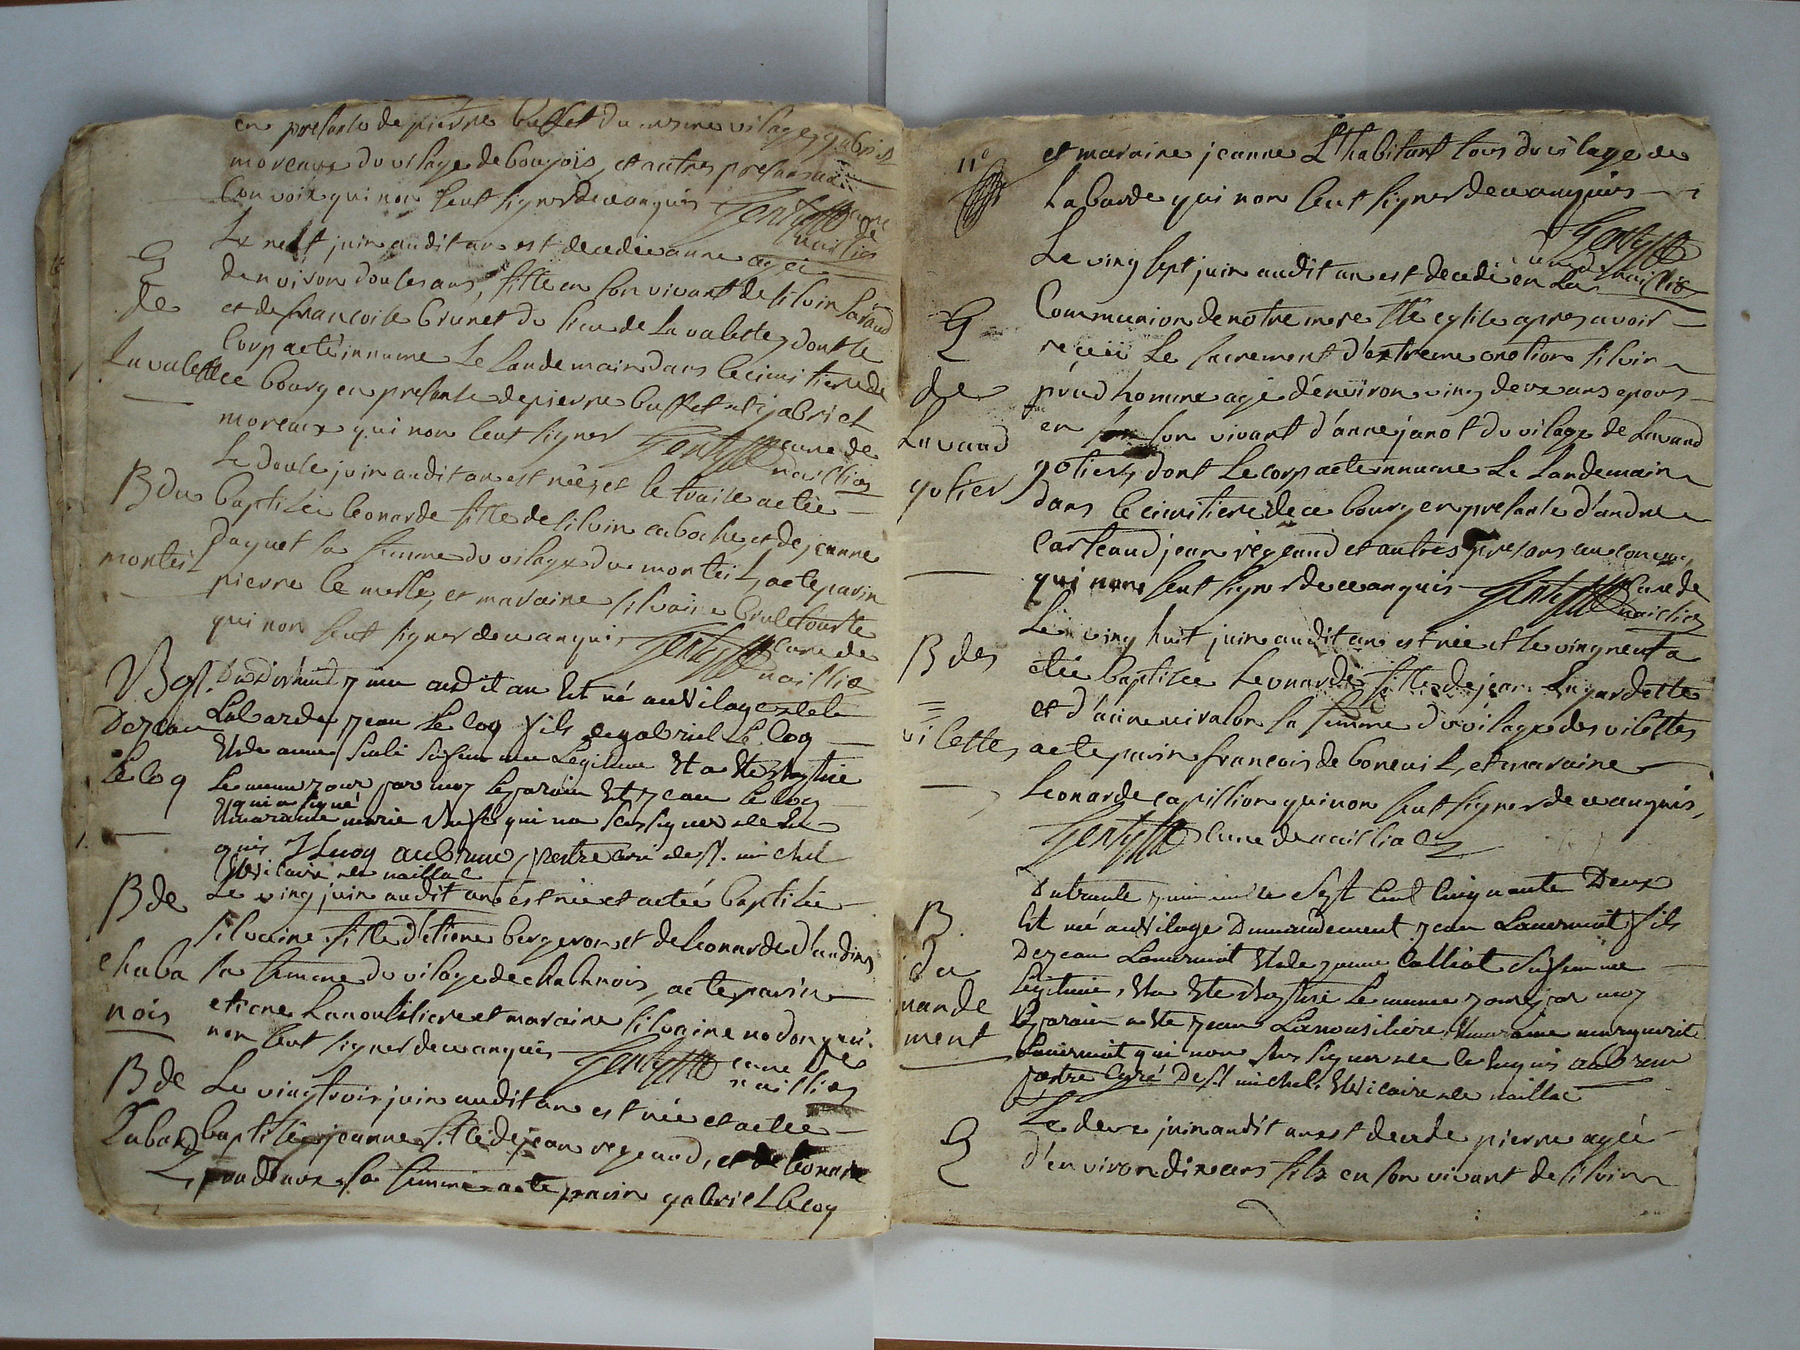 en presance de pierre buffet du mesme vilage, gabriel
moreaux du vilage de bougois, et autres presans au
convoix qui non seut signer de ce anquis
cure de naillac
Le neuf juin audit an est decedée anne agéé
G de Lavalette
denviron douse ans, fille en son vivant de silvin
et de francoise brunet du lieu de La valette, dont le
corp a eté innumé Le Lande main dans le cimitiere de
ce bourg en presance de pierre buffet et gabriel
moreaux qui non seut signer
cure de naillac
B du monteil
Le douse juin audit an est néé, et le traise a etéé
baptiséé leonarde fille de silvin caboche, et de jeanne
paquet sa femme du vilage du monteil, a eté parin
pierre le merle, et maraine silvaine bruletourte
qui non seut signer de ce anquis
cure de naillac
Bapt. de jean Le Coq
Du Dixhuit juin audit an Est né au Vilage de la
Labarde jean Le Coq fils de gabriel Le Coq
Et de anne sa femme Legitime Et a Eté Baptisé
Le meme jour par moy Le parain Est jean le Coq
qui a signé
Et maraine marie qui na seu signer de ce
quis J Lucoq aubrun prestre curé de st. michel
Et vicaire de naillac
B de chabanois
Le ving juin audit an est néé et a etéé baptiséé
silvaine fille d'etiene bergeron et de Leonarde dandins
sa femme du vilage de chabanois, a eté parin
etiene Lanousiliere et maraine silvaine nodon qui
non seut signer de ce anquis
cure de naillac
B de Labarde
Le vingtrois juin audit an est néé et a etéé
baptiséé jeanne fille de jean regeaud, et de leonarde
sa femme a eté parin gabriel lecoq
11e
et maraine jeanne L'habitant tous du vilage de
Labarde qui non seut signer de ce anquis
cure de naillac
G de Lavaud gotier
Le ving sept juin audit an est decedé en La
Communion de notre mere Ste eglise apres avoir
reçeü Le sacrement d'extreme onction silvin
prud homme agé d'environ ving deux ans epous
en son vivant d'anne janot du vilage de Lavaud
gotier, dont Le corp a eté innumé Le Landemain
dans le cimitiere de ce bourg en presance d'andre
carteaud jean regeaud et autres presans au convoy,
qui non seut signer de ce anquis
cure de naillac
B des vilettes
Le ving huit juin audit an est néé et le ving neuf a
etéé baptiséé Leonarde fille de jean Lagardette
et d'anne nivalon sa femme du vilage des vilettes
a eté parin francois de boneuil, et maraine
Leonarde capillion qui non seut signer de ce anquis,
cure de naillac
B du mandement
Du trante juin mille sept Cent Cinquante Deux
Est né au Vilage Dumandement jean Lavermiot fils
De jean Lavermiot Et de jeanne Calliot sa femme
Legitime, Et a Eté Baptisé Le meme jour par moy
Le parain a Eté jean Lanousiliere Et maraine marguerite
Lavermiot qui non seu signer de ce enquis aubrun
prestre Curé De st michel Et vicaire de naillac
G
Le deux juin audit an est decedé pierre agéé
d'environ dix ans fils en son vivant de silvin